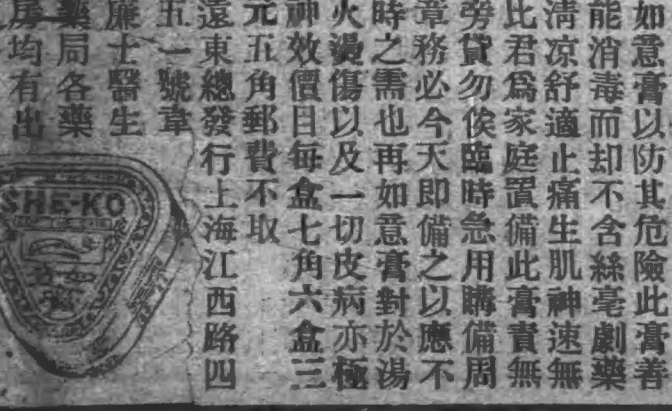 如意膏以防其危險此膏善
能消毒而却不含絲毫劇藥
清凉舒適止痛生肌神速無
比君爲家庭置備此膏責無
旁貸勿俟臨時急用購備周
章務必今天即備之以應不
時之需也再如意膏對於湯
火燙傷以及一切皮病亦極
神效價日每盒七角六盒三
元五角郵費不取
遠東總發行上海江西路四
五一號韋
廉士醫生
藥局各藥
房均有出
SHE-KO